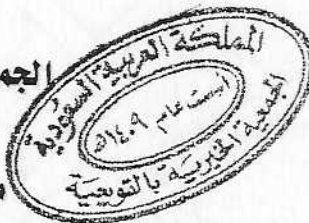 الجم
المملكة العربية السعودية
أسست عام ١٤٠٩هـ
الجمعية الخيرية بالقويعية